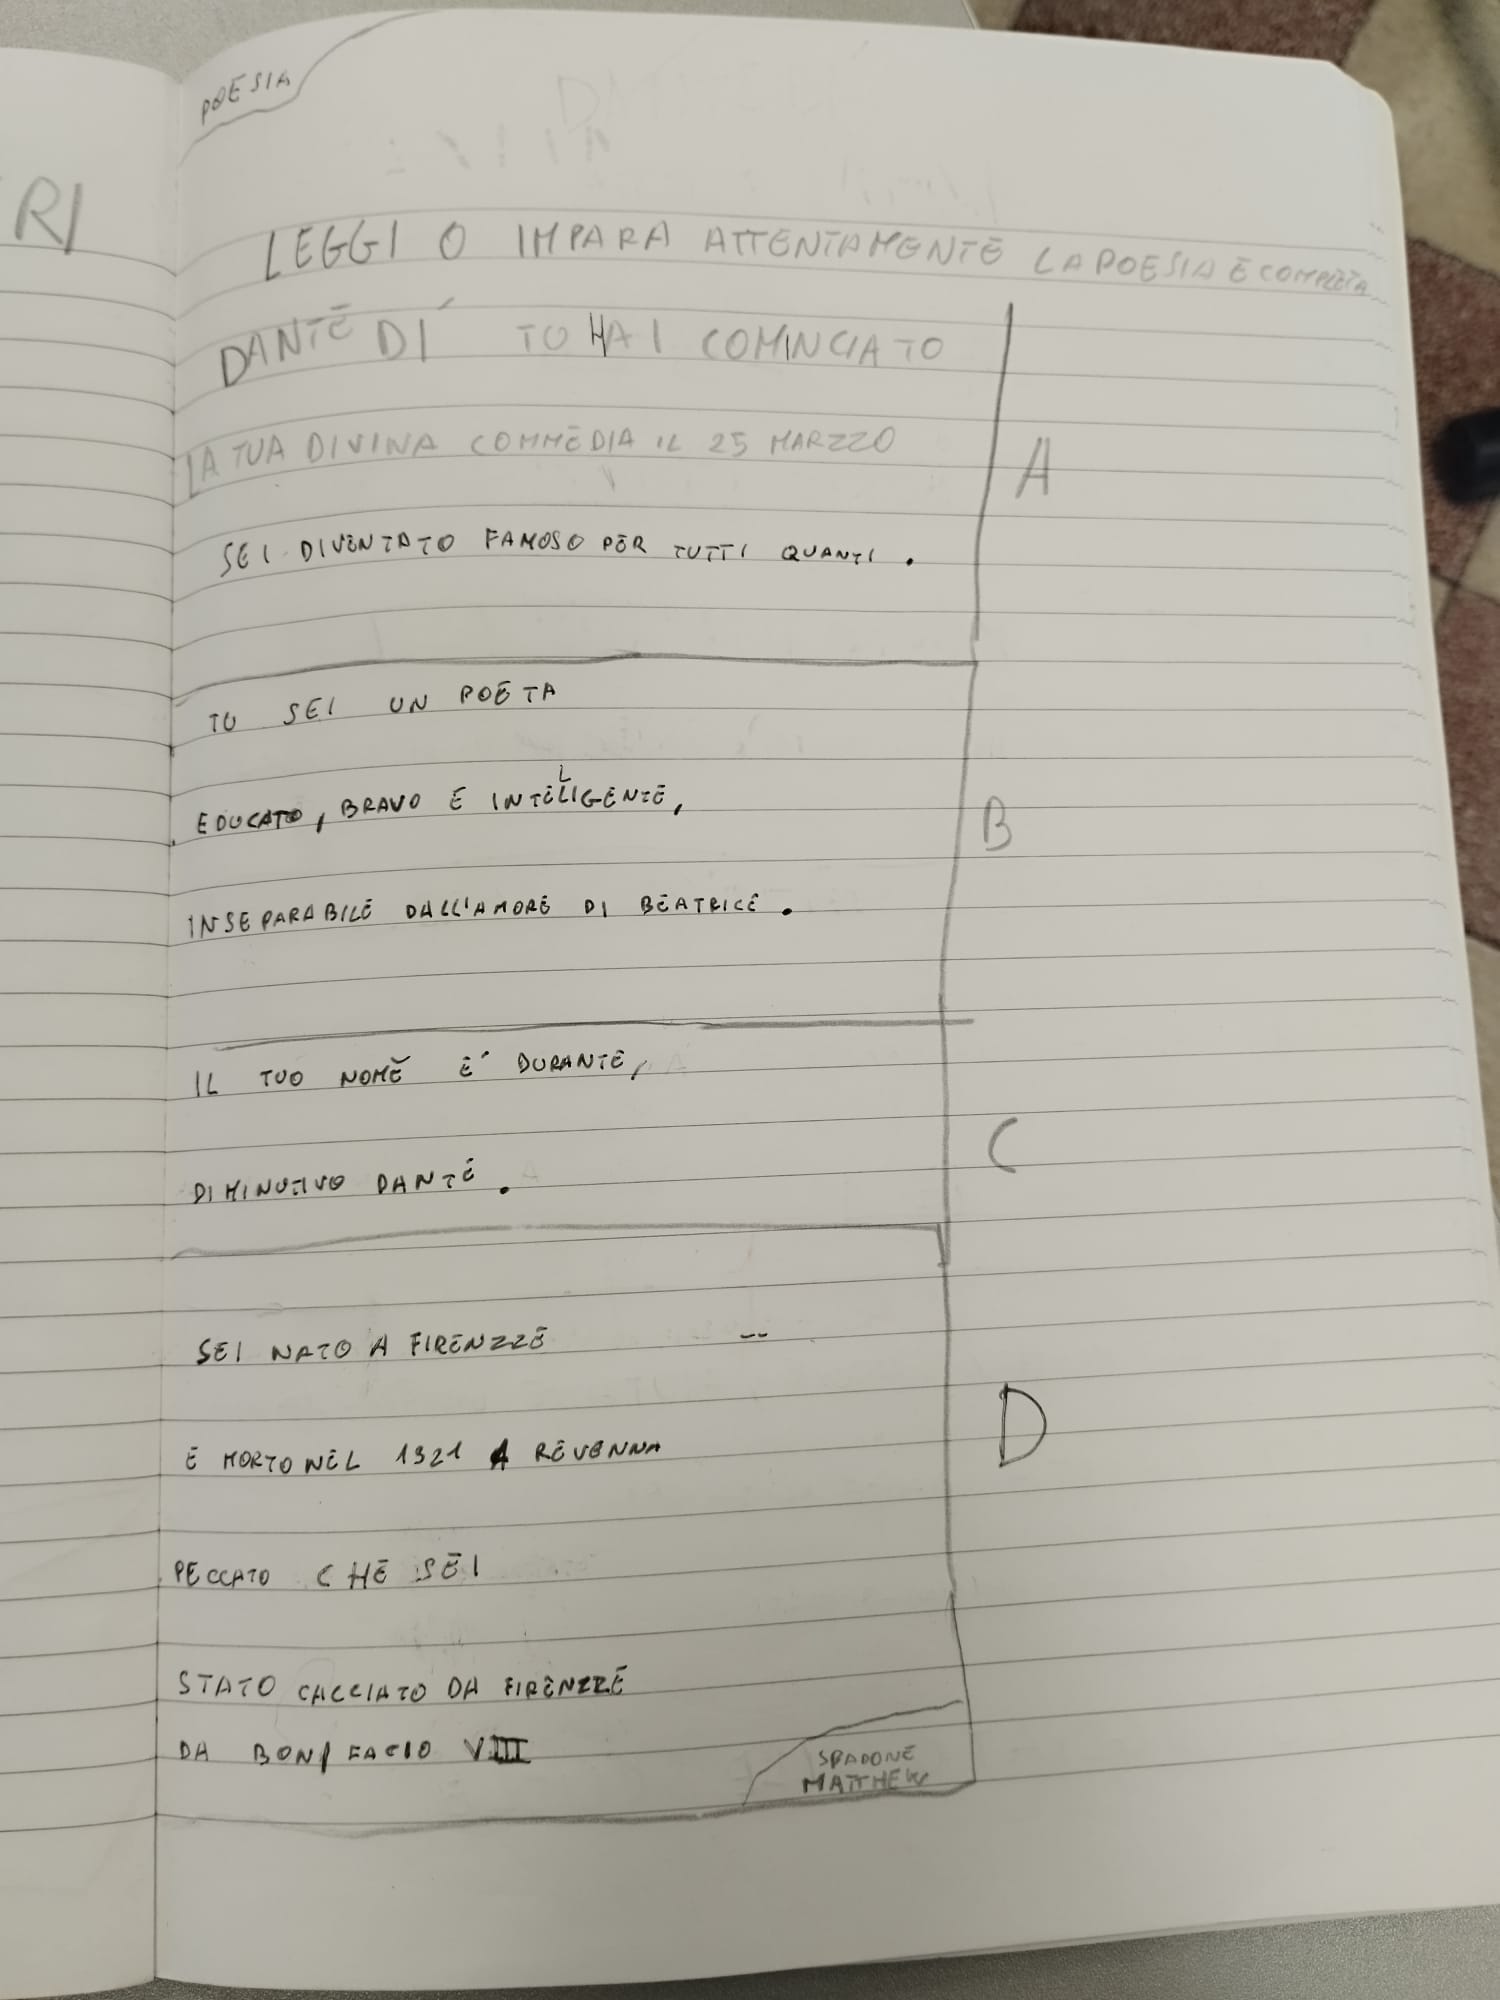 RI
POESIA
LEGGI O IMPARA ATTENTAMENTE LA POESIA E COMPLETA
DANTE DÍ TU HAI COMINCIATO
LA TUA DIVINA COMMEDIA IL 25 MARZZO
A
SEI DIVENTATO FAMOSO PER TUTTI QUANTI.
TU SEI UN POETA
EDUCATO, BRAVO E INTELLIGENTE,
B
INSEPARABILE DALL'AMORE DI BEATRICE.
IL TUO NOME E' DURANTE,
C
DIMINUTIVO DANTE.
SEI NATO A FIRENZZE --
D
E MORTO NEL 1321 A REVENNA
PECCATO CHE SEI
STATO CACCIATO DA FIRENZZE
DA BONIFACIO VIII
SPADONE
MATTHEW